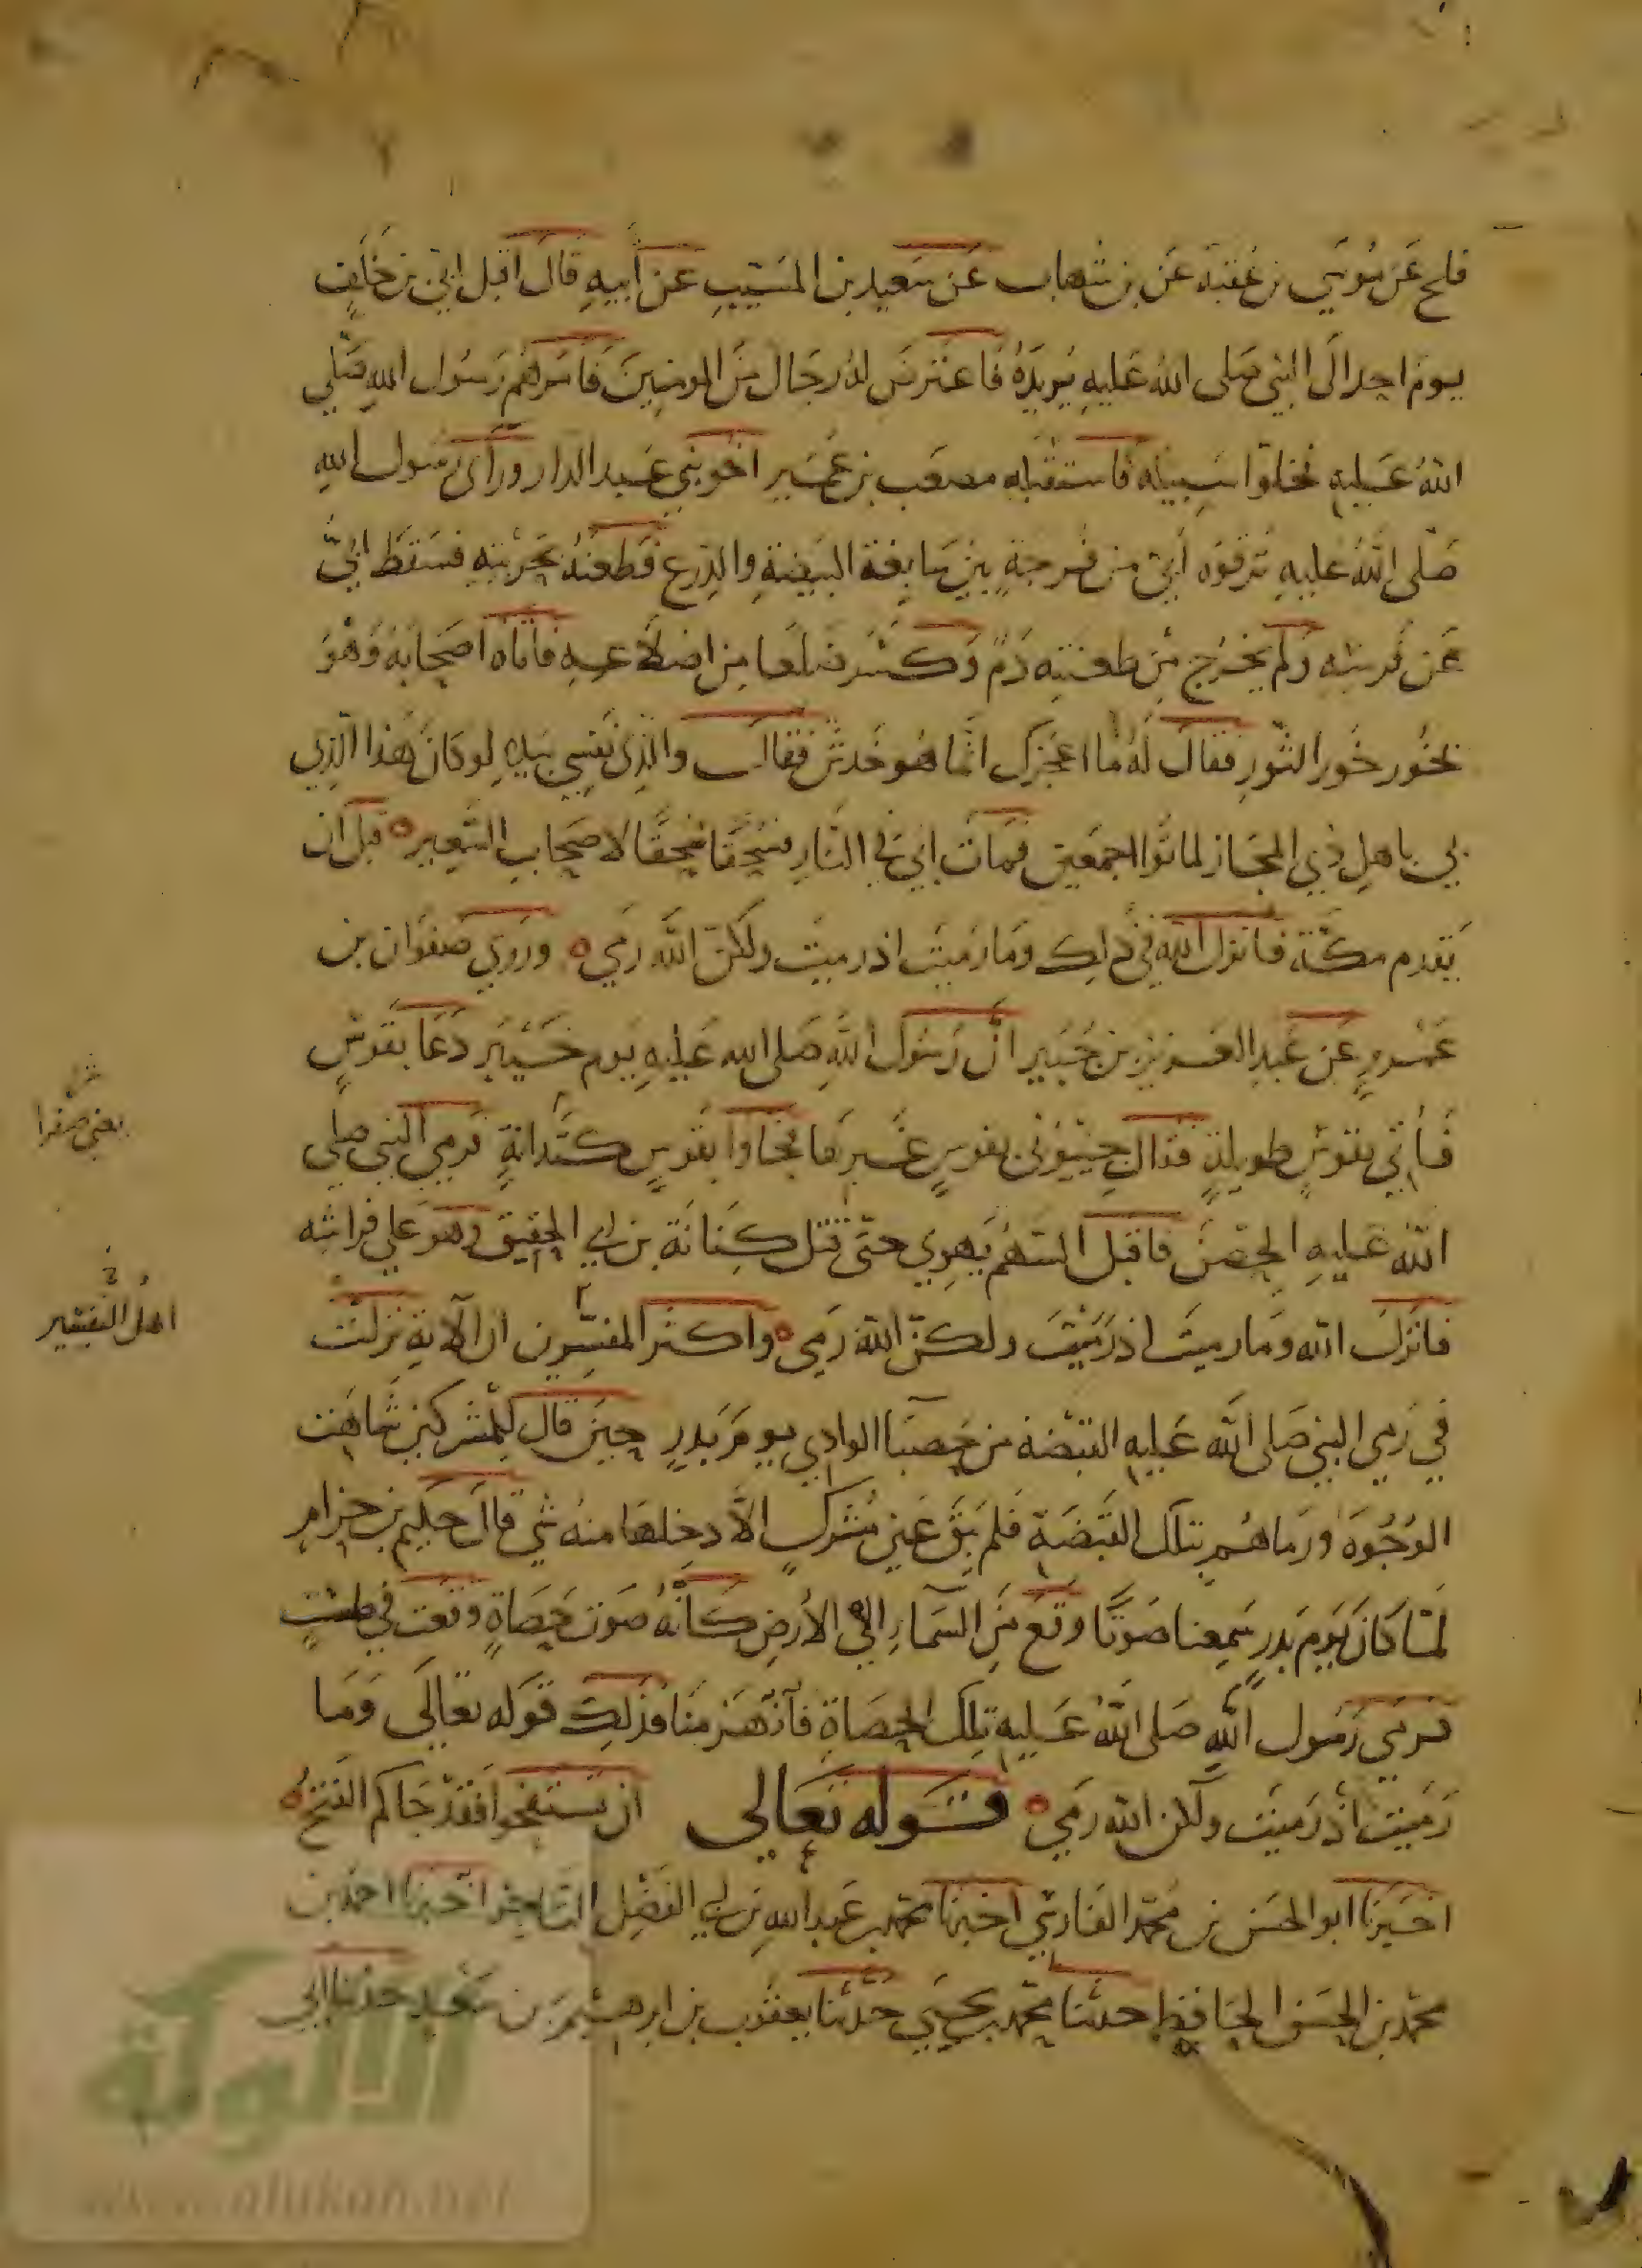 فلح عَن مُوسَي بن عُقبَة عَن بن شهاب عَن سَعيد بن المسَيّبِ عَن أبيهِ قالَ اقبل ابيّ بن خَلَفٍ
يومَ احدٍ الَى النبي صَلى اللهُ عَليهِ يُريدُهُ فاعتَرضَ لهُ رجَال مِنَ المومنِينَ فامَرهُم رَسُول اللهِ صَلّي
اللهُ عَليهِ فخلوّا سَبِيلَه فاستقبَله مصعَب بن عُمَير اخو بَني عَبد الدار وَرَأى رَسُول اللهِ
صَلّى اللهُ عَليهِ تَرقوَه أُبيّ من فُرجةٍ بَين سَابِغة البَيضةِ والدِرع فَطعَنَهُ بحَربتِهِ فسَقطَ ابُيّ
عَن فَرسِهِ وَلم يخرُج مِن طعنتِه دَمٌ وَكَسَر ضلعا مِن اضلَاعِهِ فاتَاه اصحَابَهُ وَهْوَ
يخُور خُور الثّورِ فقالَ لَهُ مَا اعجَزك انّما هُو خَدشٌ فقالَ والذِى نَفسِي بيَدِهِ لو كانَ هَذا الّذِي
بي باهل ذي المجَاز لماتوا اجمَعين فمَات ابيّ الى النّار فسُحقًا فسُحقًا لاصحَاب السَّعِير ٥ قبل ان
يَقدم مكّة فانزل الله في ذلِك وَمَا رَميتَ اذ رميتَ ولكنّ اللهَ رَمَي ٥ وروَي صَفوَان بن
عَمْروٍ عَن عَبدِ العَزيز بن جُبَير انّ رَسُول اللهِ صَلى الله عَليهِ يَوم خَيْبَر دَعَا بقَوسٍ
فَأُتي بقَوسٍ طويلةٍ فقال جيئوُنى بقوسٍ غَيرهَا فجَاوا بقَوسٍ كَبدَانةٍ فَرمي النبي صلي
اللهُ عَليهِ الحِصنَ فاقبَل السَهمُ يَهوِي حتّى قَتل كِنَانَة بن ابي الحقيق وهوَ عَلي فراشِه
فانَزلَ الله وَمَا رميتَ اذ رَمَيْتَ ولكنّ اللهَ رَمَي ٥ وَاكثر المفسّرِين ان الآيةِ نزلتْ
في رَمي النبي صَلى الله عَليهِ القبضة من حَصبَا الوادِي يومَ بَدرٍ حِينَ قال لِلمُشركين شَاهَت
الوُجُوهَ ورمَاهُم بتلك القَبضَةِ فلم يَبقَ عَين مُشركٍ الاّ دخلهَا منهُ شي قالَ حَكيم بن حزامٍ
لمّا كانَ يَومَ بدرٍ سَمِعنا صَوتًا وقعَ مِنَ السّمآرِ الي الأرضِ كَانّهُ صَوت حَصَاةٍ وقعت في طستٍ
فرمَي رَسُول اللهِ صَلى اللهُ عَليهِ تِلك الحصَاةِ فانهَزَمنا فذلِك قَوله تعَالَى وَمَا
رَمَيتَ اذ رَميتَ ولكن اللهَ رمَي ٥ قَوله تَعَالي ان تَستفتحوا فقد جَاكم الفَتحُ ٥
اخبَرنا ابو الحسَن بن محُمّد الفَارسي اخبَرنا محمّد بن عَبد اللهِ بن ابي الفَضْلِ التاجر اخبَرنا احمد بن
محمّد بن الحسَن الحَافظِ حدثنا محمّد بن يحيَي حَدّثنا يعقُوب بن ابرهيم بن سَعيد حَدثنا ابي
يعني صَفرا
اهلُ التفسير
الألوكة
www.alukah.net